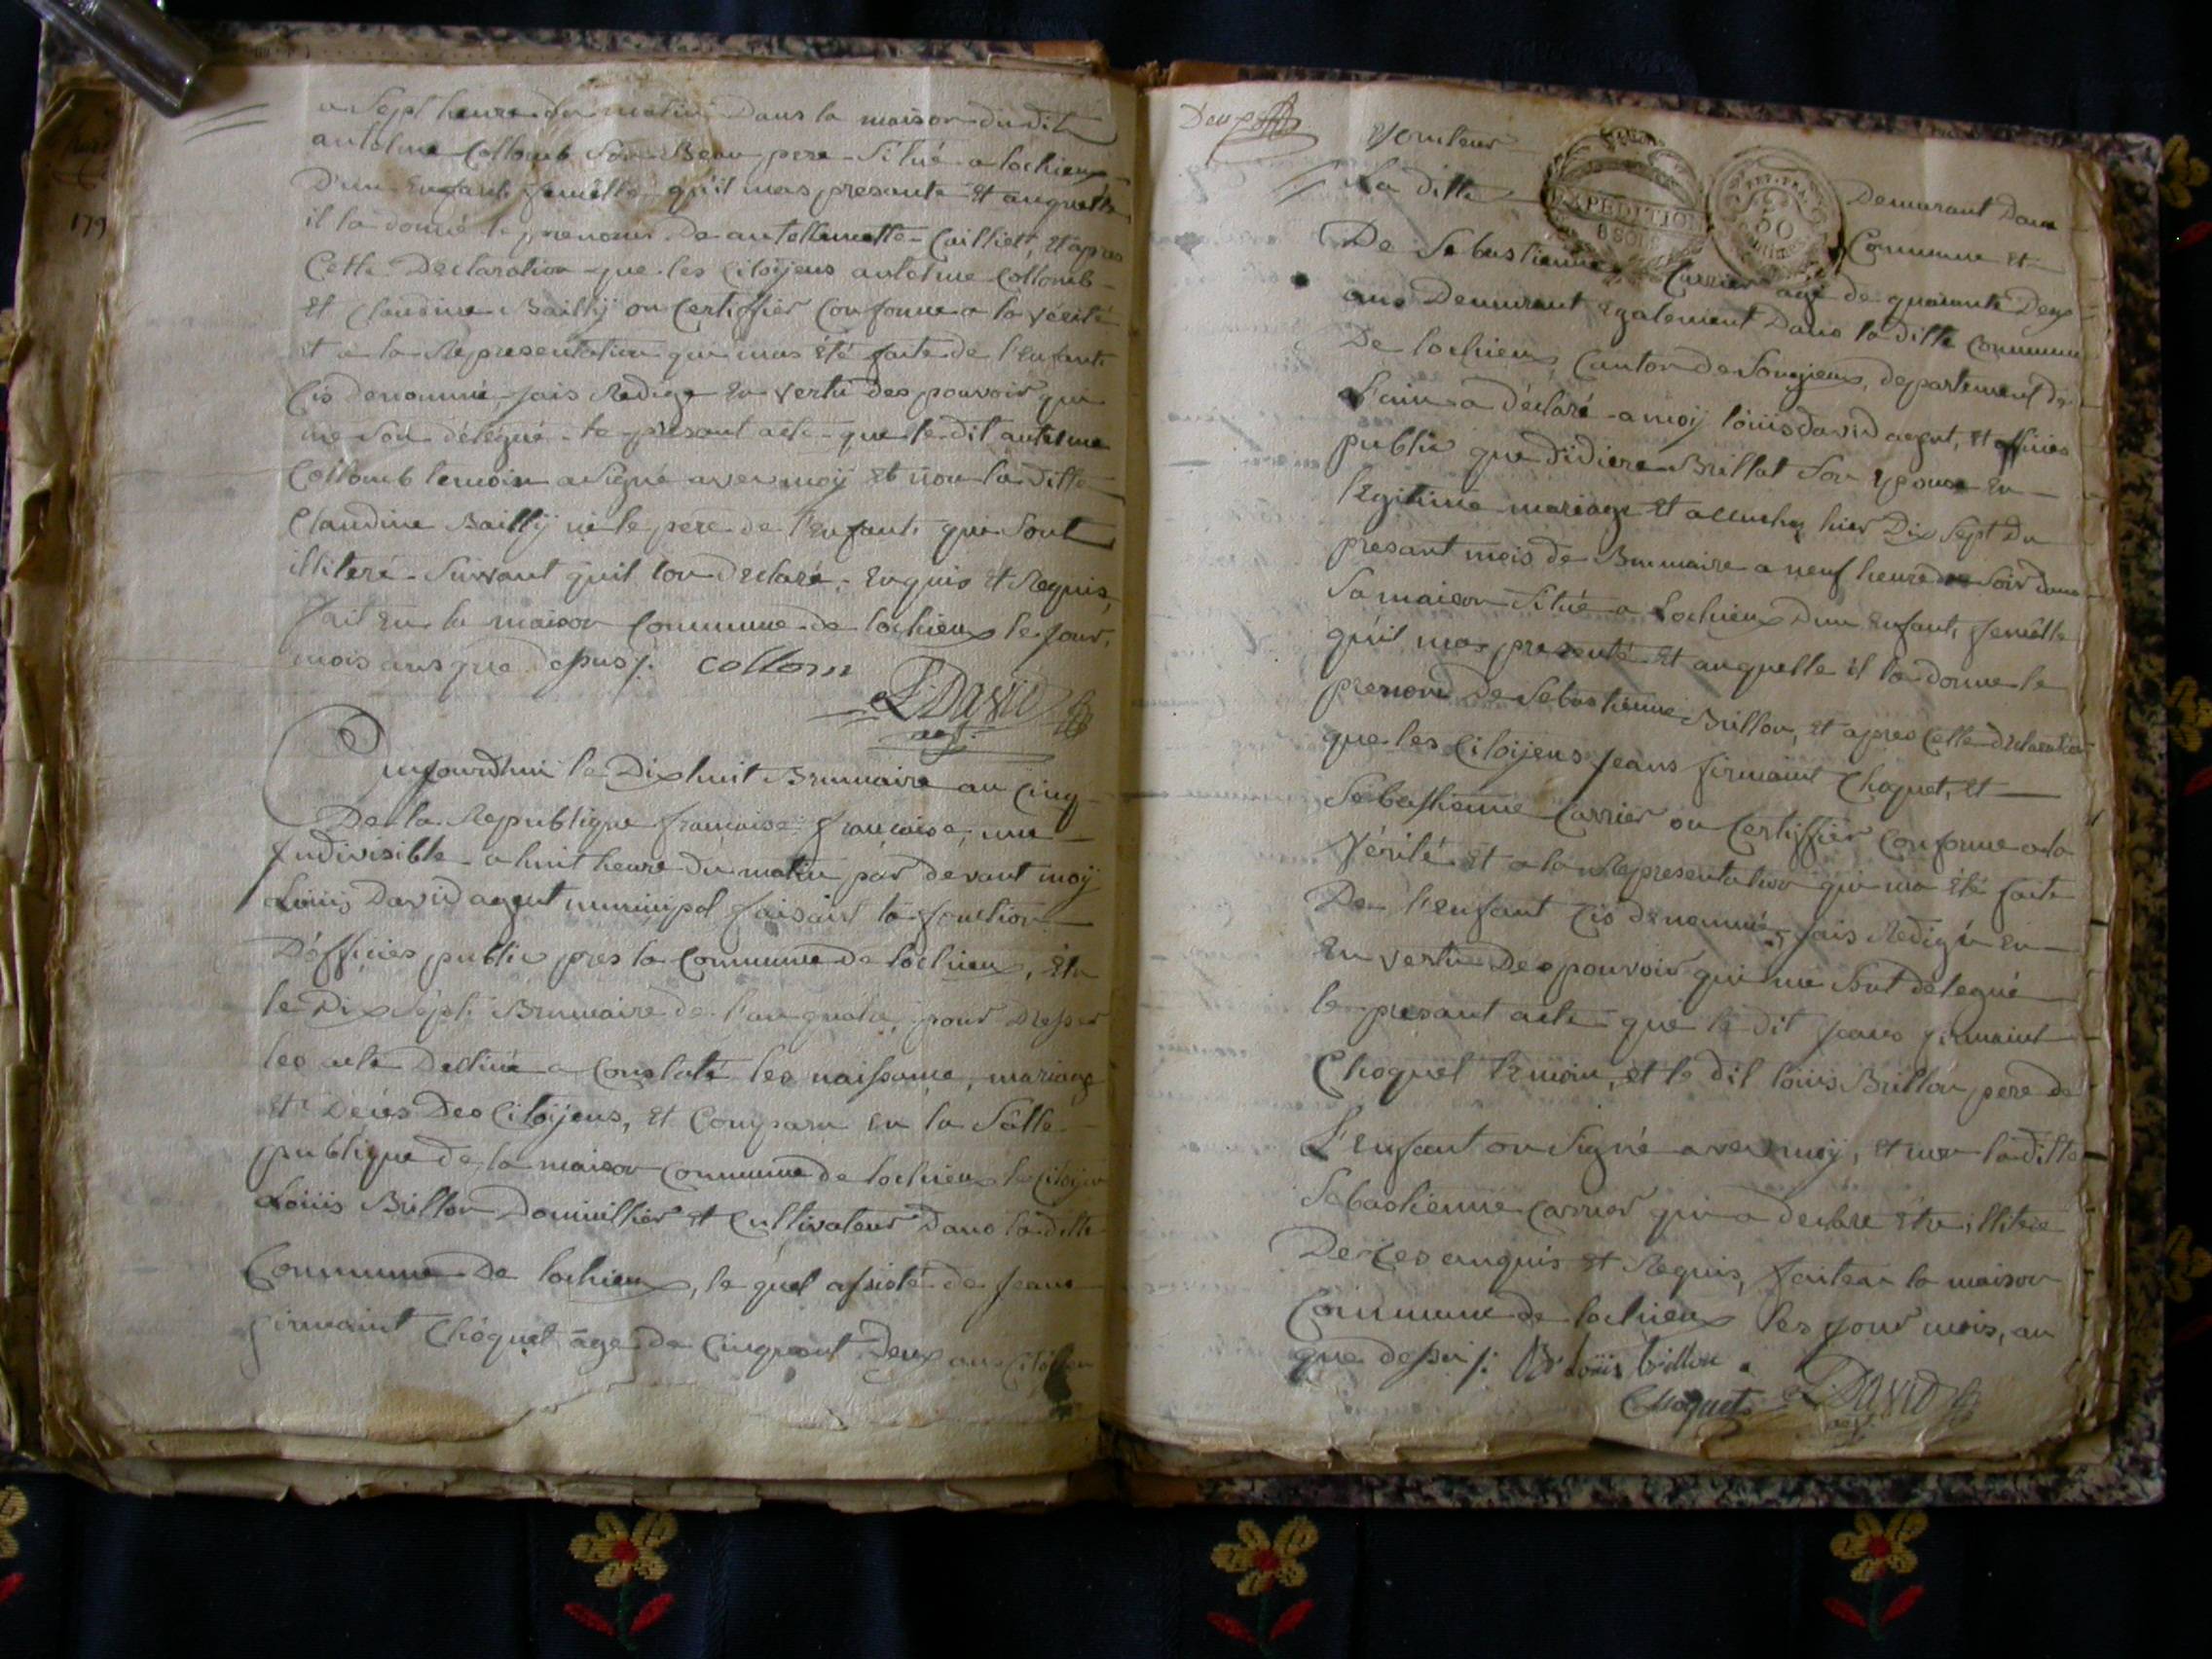 a Sept heure du matin Dans la maison du dit
antelme Collomb Son Beau pere Situé a lochieux
D'un Enfant femelle qu'il mas presante Et auquelle
il la donné le prenom De antellmette Caillier, Et apres
Cette Declaration que les Citoÿens antelme Collomb
Et Claudine Baillÿ on Certiffier Conforme a la Vérité
Et a la Representation qui mas Eté faite de l'Enfant
Cis denommé, jais Redige En vertu des pouvoir qui
me Son délégué le presant acte que le dit antelme
Collomb temoin a Signé avec moÿ Et non la ditte
Claudine Baillÿ ni le pere de l'Enfant qui Sont
illiteré Suivant quil lon declaré, Enquis Et Requis,
fait En la maison Commune de lochieux le jour,
mois ans que dessus /. collom
L. David
agt.
Aujourdhui le Dixhuit Brumaire an Cinq
De la Republique francaise francaise, une
Indivisible a huit heure du matin par devant moÿ
Loüis David agent municipal faisant la fonction
D'officier public pres la Commune de lochieux, Elu
le Dix Sept Brumaire de l'an quatre, pour Dresser
les acte Destiné a Constaté les naissance, mariage
Et Décés Des Citoÿens, Et Comparu En la Salle
publique de la maison Commune de lochieux le Citoÿen
Loüis Brillon Domicillier Et Cultivateur Dans la ditte
Commune De lochieux, le quel assisté de Jeans
firmaint Choquet age de Cinquant Deux ans
179
EXPEDITION
8 SOLS
50
La Ditte Demurant Dans
Commune Et
De Sebastienne Carrier agé de quarante Deux
ans Demurant Egalement Dans la Ditte Commune
De lochieux, Canton de Songieux, departement de
L'ain a déclaré a moÿ loüis david agent, Et officier
public que Didiere Brillat Son Epouse En
légitime mariage Et accuchez hier Dix Sept Du
presant mois de Brumaire a neuf heure du Soir dans
Sa maison Situé a Lochieux D'un Enfant, femelle
qu'il mas presenté Et auquelle il la donne le
prenom De Sebastienne Brillon, Et apres Cette declaration
que les Citoÿens Jeans firmaint Choquet, Et
Sebastienne Carrier on Certiffier Conforme a la
Vérité Et a la Representation qui ma Eté faite
De l'enfant Cis denommé, jais Redigér En
En vertu Des pouvoir qui me Sont délegué
le presant acte que le dit Jeans firmaint
Choquet temoin, Et le dit loüis Brillon pere de
L'Enfant on Signé avec moÿ, Et non la ditte
Sebastienne Carrier qui a declare Etre illiteré
De Ces enquis Et Requis, fait en la maison
Commune de lochieux les jour mois, an
que dessu /: loüis brillon
Choquet L. David
agt.